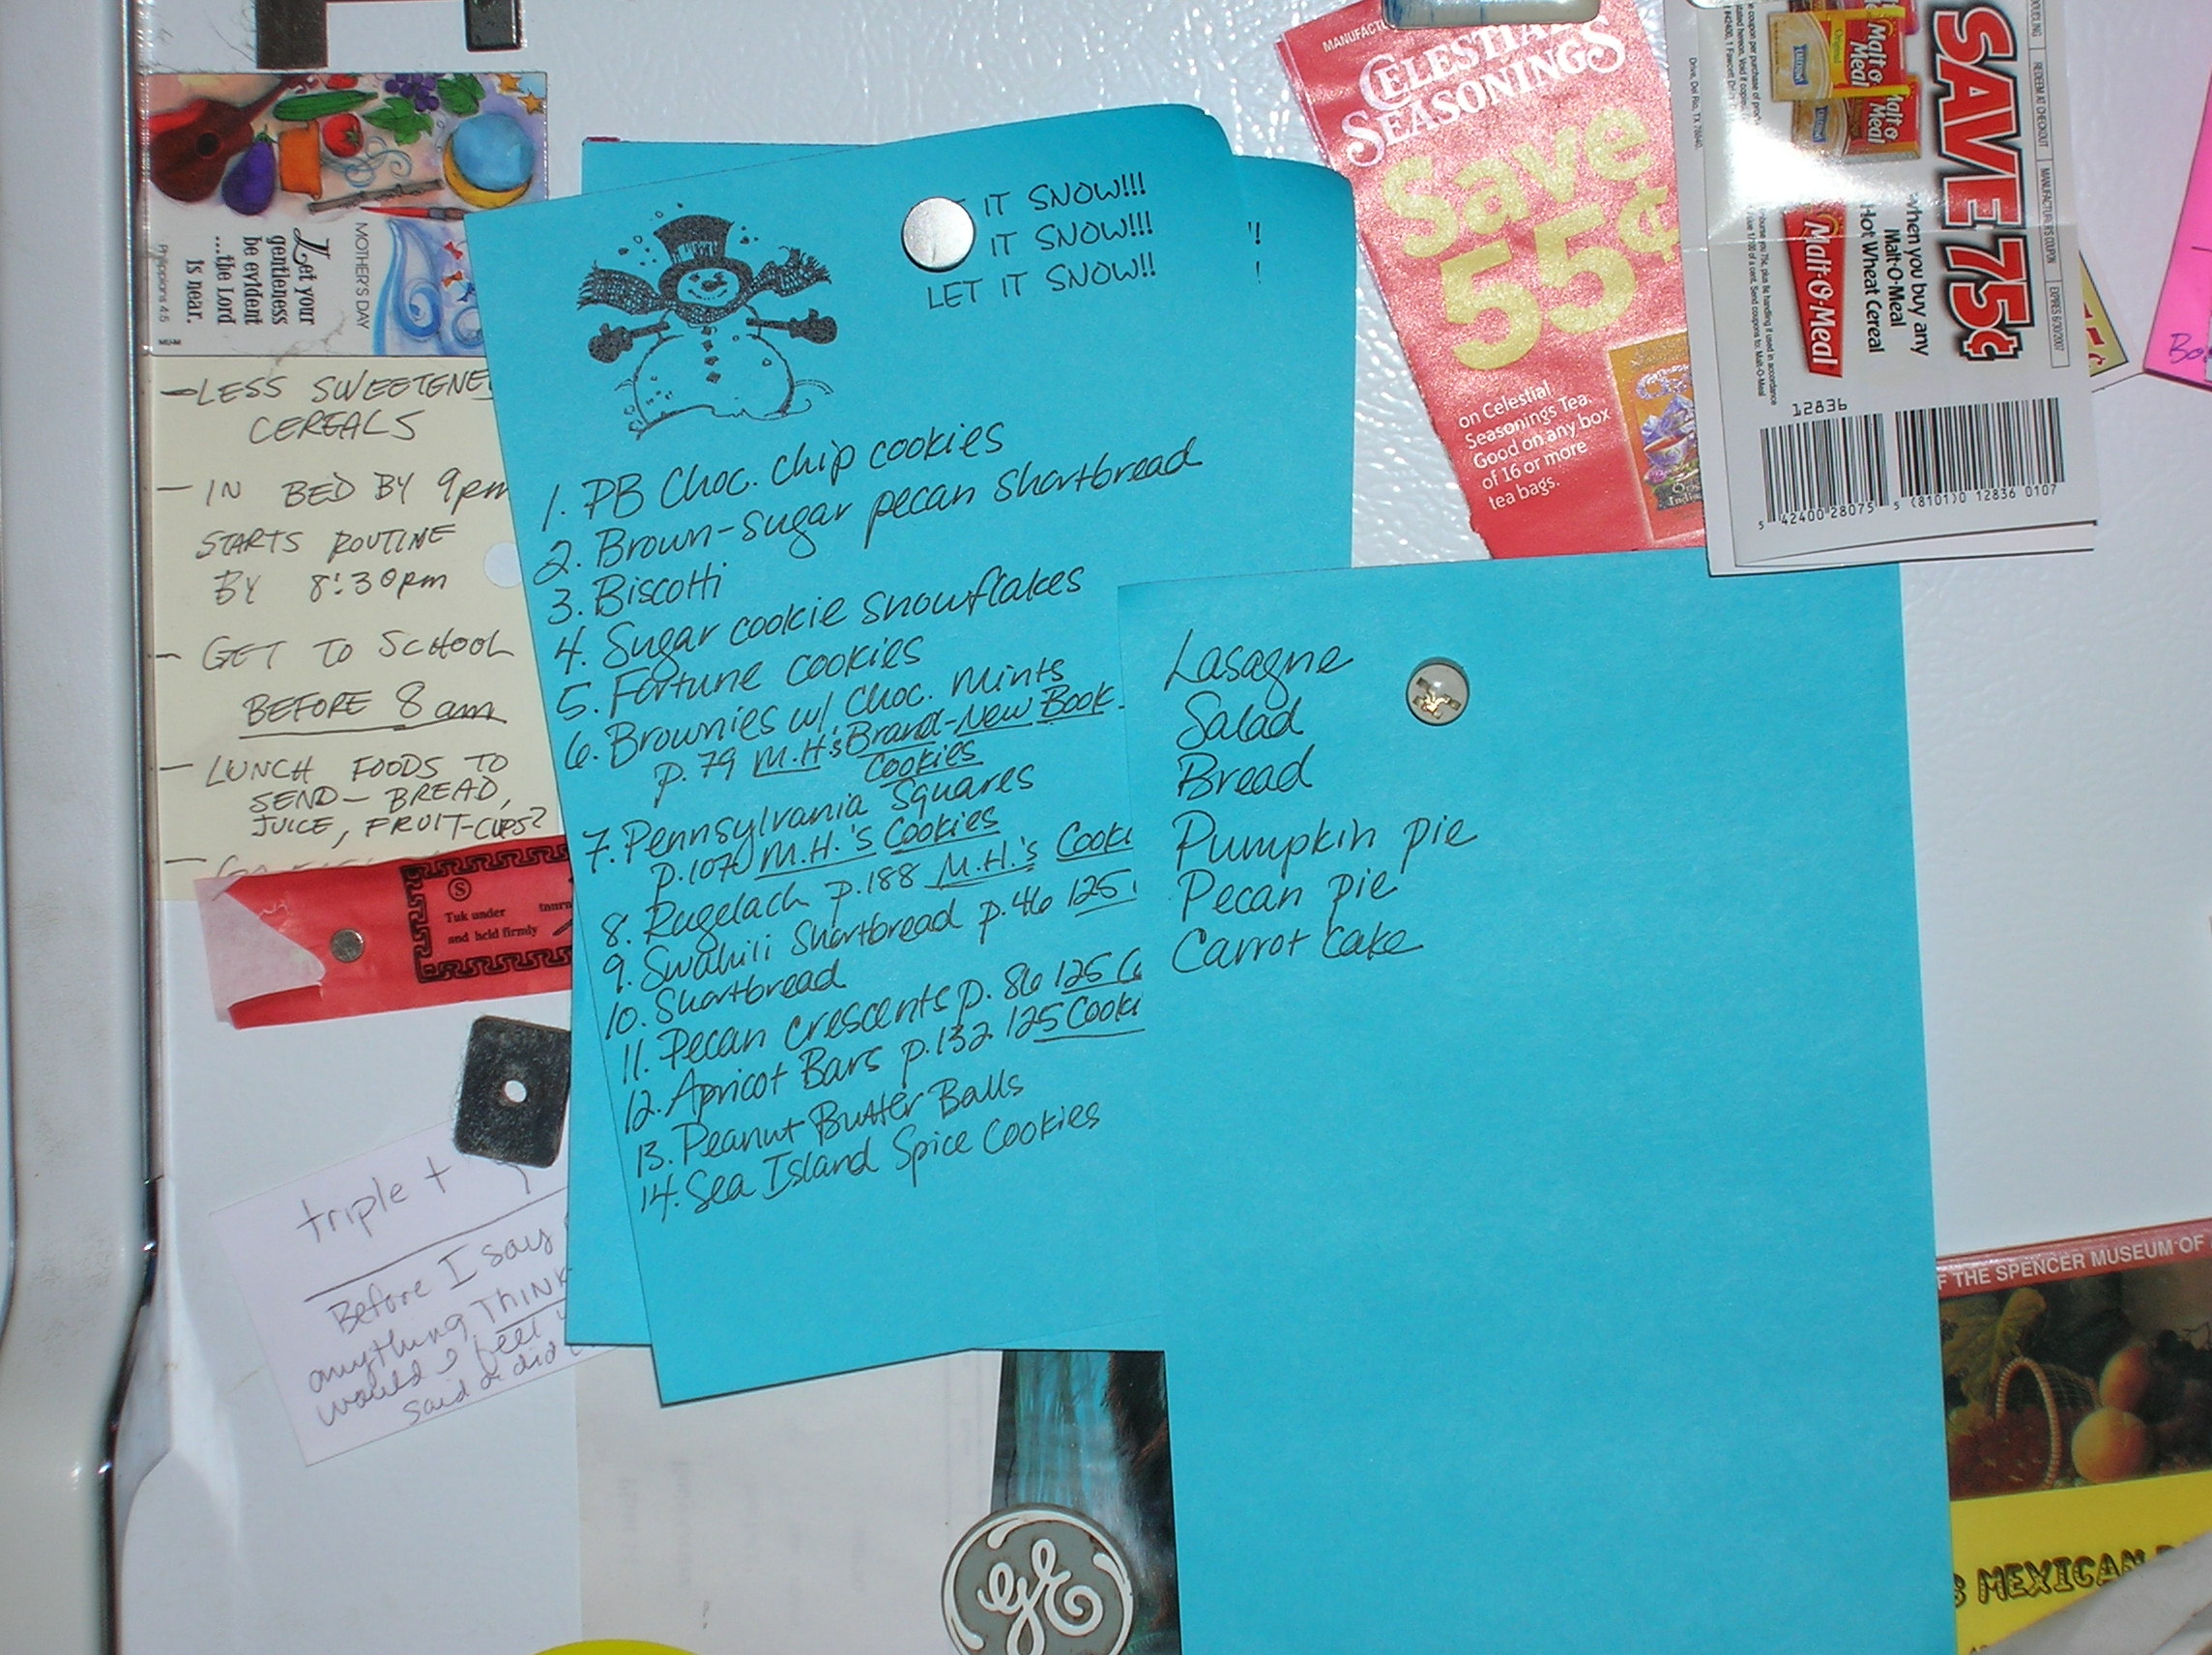 MOTHER'S DAY
Let your
gentleness
be evident
...the Lord
is near.
Philippians 4:5
- LESS SWEETENE
CEREALS
- IN BED BY 9pm
STARTS ROUTINE
BY 8:30pm
- GET TO SCHOOL
BEFORE 8am
- LUNCH FOODS TO
SEND - BREAD,
JUICE, FRUIT-CUPS?
Tuk under
and held firmly
triple t
Before I say
anything THINK
would I feel
said & did
IT SNOW!!!
IT SNOW!!!
LET IT SNOW!!
1. PB Choc. chip cookies
2. Brown-sugar pecan shortbread
3. Biscotti
4. Sugar cookie snowflakes
5. Fortune cookies
6. Brownies w/ choc. mints
p. 79 M.H.'s Brand-New Book
Cookies
7. Pennsylvania Squares
p. 107 M.H.'s Cookies
8. Rugelach p. 188 M.H.'s Cooki
9. Swahili Shortbread p. 46 125
10. Shortbread
11. Pecan crescents p. 86 125 C
12. Apricot Bars p. 132 125 Cooki
13. Peanut Butter Balls
14. Sea Island Spice Cookies
Lasagne
Salad
Bread
Pumpkin pie
Pecan pie
Carrot cake
MANUFACT
CELESTIAL
SEASONINGS
Save
55¢
on Celestial
Seasonings Tea.
Good on any box
of 16 or more
tea bags.
SAVE 75¢
when you buy any
Malt-O-Meal
Hot Wheat Cereal
Malt-O-Meal
Malt o Meal
Original
REDEEM AT CHECKOUT
MANUFACTURER'S COUPON
EXPIRES 6/30/2007
12836
5 42400 28075 5 (8101)0 12836 0107
GE
F THE SPENCER MUSEUM OF
MEXICAN